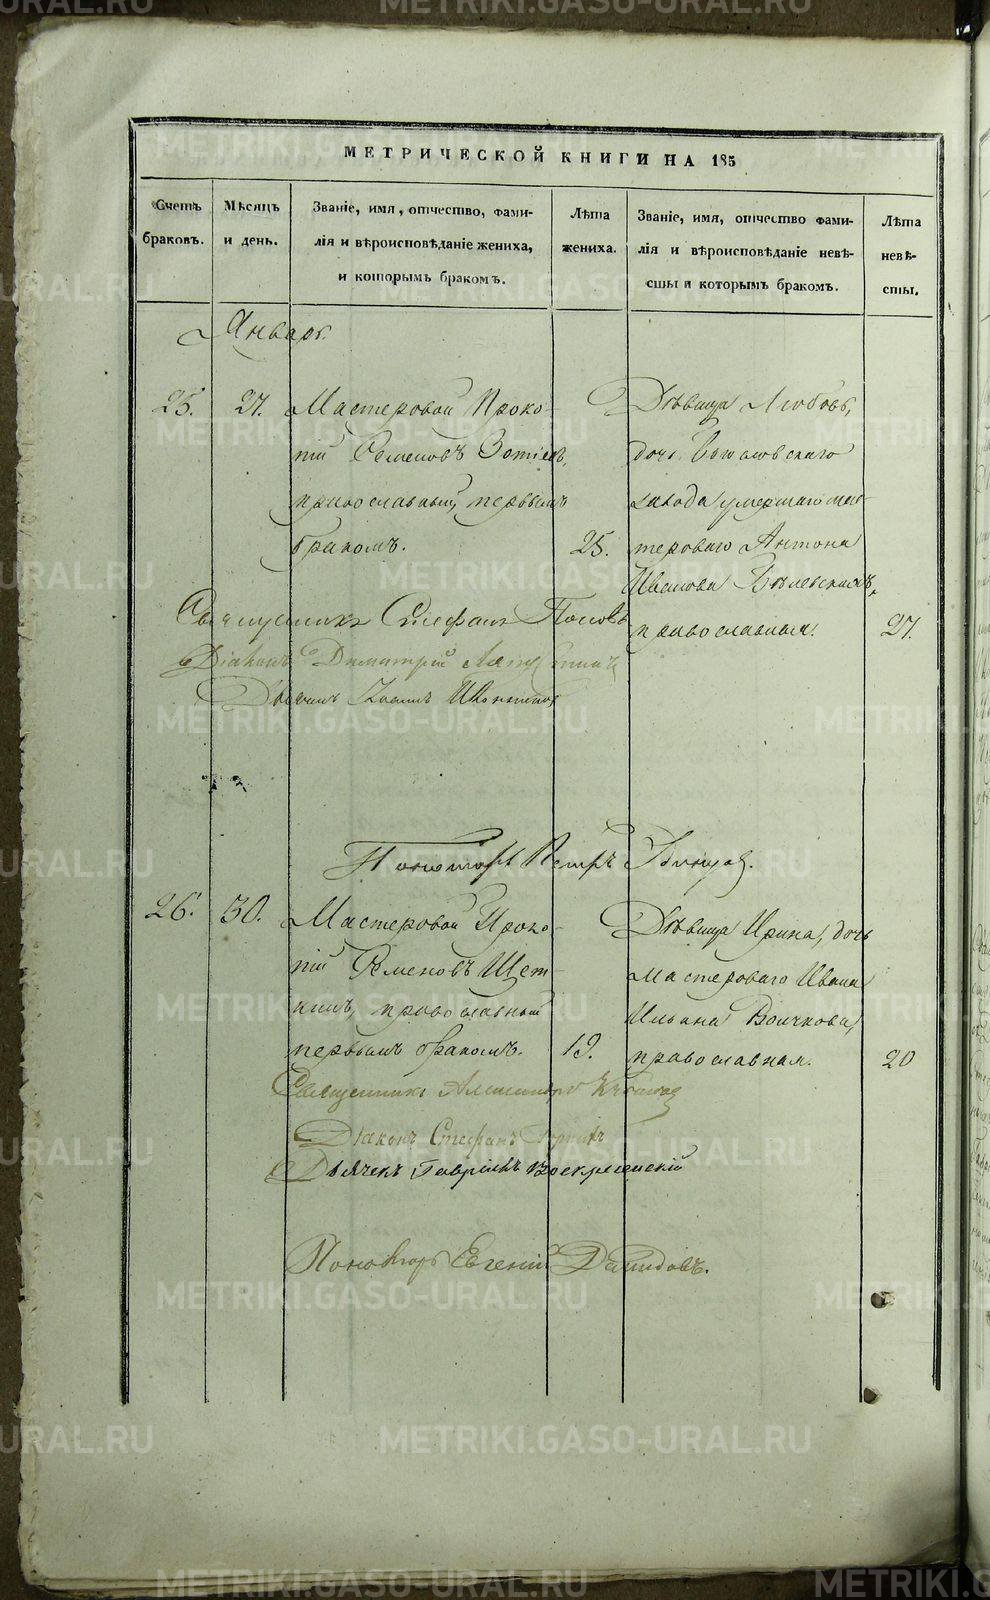 МЕТРИЧЕСКОЙ КНИГИ НА 185
Счетъ браковъ.
Мѣсяцъ и день.
Званіе, имя, отчество, фами-
лія и вѣроисповѣданіе жениха,
и которымъ бракомъ.
Лѣта жениха.
Званіе, имя, отчество фами-
лія и вѣроисповѣданіе невѣ-
сты и которымъ бракомъ.
Лѣта невѣ-
сты.
Январь.
25.
27.
Мастеровой Проко-
пій Семеновъ Зотѣевъ,
православный, первымъ
бракомъ.
25.
Дѣвица Любовь,
дочь Богословскаго
завода умершаго мас-
тероваго Антона
Иванова
православная.
27.
Священникъ Стефанъ Поповъ
Діаконъ Димитрій
Дьячекъ Іоаннъ
Пономарь Петръ
26.
30.
Мастеровой Проко-
пій Семеновъ Щет-
кинъ, православный
первымъ бракомъ.
19.
Дѣвица Ирина, дочь
мастероваго Ивана
Ильина Волчкова,
православная.
20
Священникъ Александръ
Діаконъ Стефанъ
Дьячекъ Гавріилъ Воскресенскій
Пономарь Евгеній Давидовъ.
METRIKI.GASO-URAL.RU